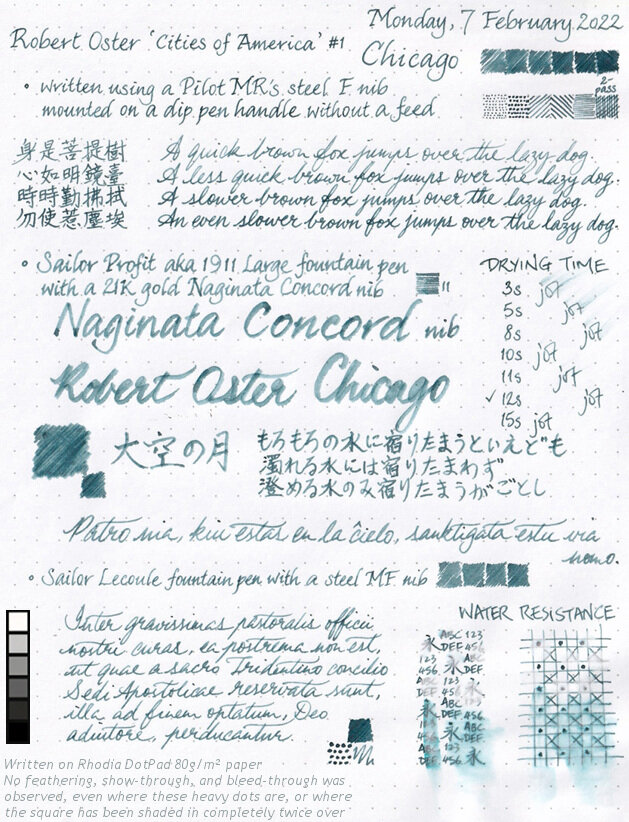 Monday, 7 February 2022
Robert Oster 'Cities of America' #1 Chicago
2-pass
• written using a Pilot MR's steel F nib
mounted on a dip pen handle without a feed
身是菩提樹 A quick brown fox jumps over the lazy dog.
心如明鏡臺 A less quick brown fox jumps over the lazy dog.
時時勤拂拭 A slower brown fox jumps over the lazy dog.
勿使惹塵埃 An even slower brown fox jumps over the lazy dog.
• Sailor Profit aka 1911 Large fountain pen
with a 21K gold Naginata Concord nib
Naginata Concord nib
Robert Oster Chicago
DRYING TIME
3s jot
5s jot
8s jot
10s jot
11s jot
✓ 12s jot
15s jot
大空の月
もろもろの水に宿りたまうといえども
濁れる水には宿りたまわず
澄める水のみ宿りたまうがごとし
Patro nia, kiu estas en la ĉielo, sanktigata estu via
nomo.
• Sailor Lecoule fountain pen with a steel MF nib
Inter gravissimas pastoralis officii
nostri curas, ea postrema non est,
ut quae a sacro Tridentino concilio
Sedi Apostolicae reservata sunt,
illa ad finem optatum, Deo
adiutore, perducantur.
WATER RESISTANCE
永 ABC 123
DEF 456
123 永 ABC
456 DEF
ABC 123 永
DEF 456
永 ABC
123 DEF 456
ABC 永 123
DEF 456
123 ABC 永
456 DEF
Written on Rhodia DotPad 80g/m² paper
No feathering, show-through, and bleed-through was
observed, even where these heavy dots are, or where
the square has been shaded in completely twice over